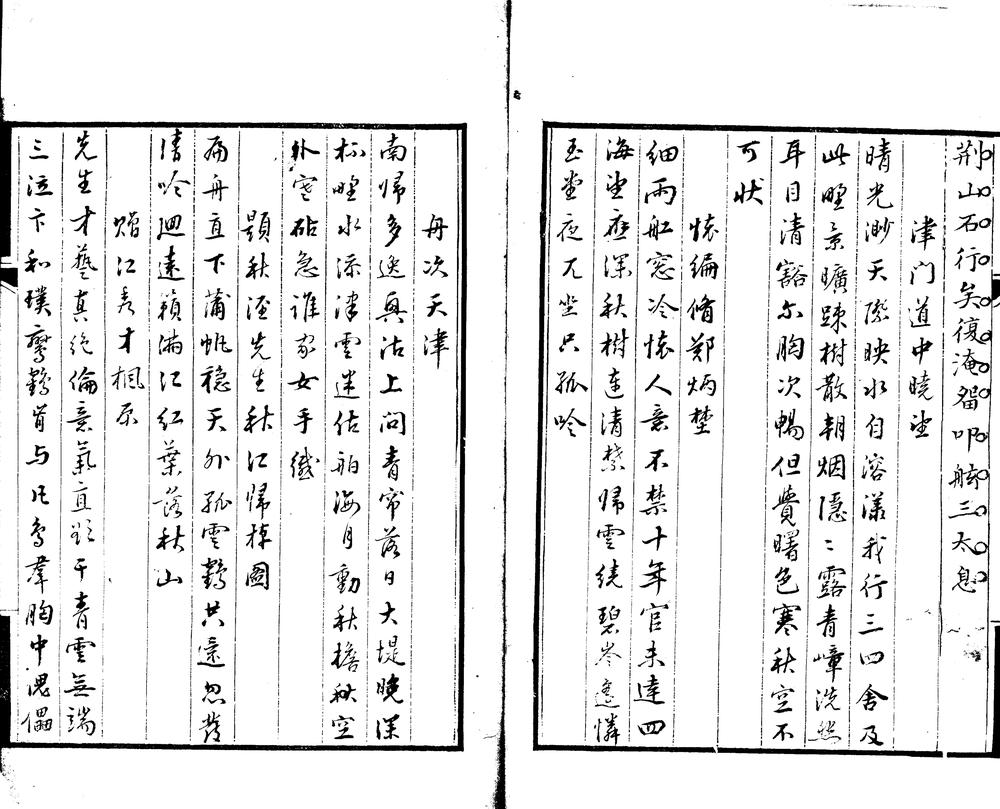 荆山石行矣復淹留叩舷三太息
津门道中曉望
晴光渺天際映水自溶漾我行三四舍及
此野景曠疎树散朝烟隱〻露青嶂洗然
耳目清豁尔胸次暢但覺曙色寒秋空不
可状
懐編脩鄭炳埜
細雨舩窓冷懐人意不禁十年官未達四
海望應深秋樹連清禁歸雲繞碧岑遙憐
玉堂夜兀坐只孤吟
舟次天津
南歸多逸興沽上問青帘落日大堤晚深
秋野水添津雲迷估舶海月動秋檐
空砧急谁家女手纖
題秋渥先生秋江歸棹圖
扁舟直下蒲帆稳天外孤雲鶴共還忽發
清吟迴遠籟滿江紅葉落秋山
贈江秀才楓原
先生才藝真绝倫意氣直欲干青雲無端
三泣卞和璞鸞鶴肯与凡鳥羣胸中傀儡